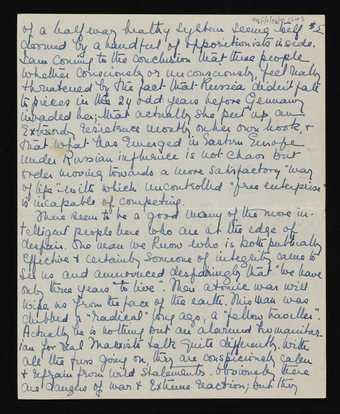 of a half way healthy system seems half
doomed by a handful of opportunists inside.
I am coming to the conclusion that these people
whether consciously or unconsciously, feel really
threatened by the fact that Russia didn't fall
to pieces in the 24 odd years before Germany
invaded her; that actually she put up an
extraordy resistance mostly on her own hook, &
that what has emerged in Eastern Europe
under Russian influence is not chaos but
order moving towards a more satisfactory "way
of life" with which uncontrolled "free enterprise"
is incapable of competing.
There seem to be a good many of the more in-
telligent people here who are at the edge of
despair. One man we know who is both publically
effective & certainly someone of integrity came to
see us and announced despairingly that "we have
only three years to live". Then atomic war will
wipe us from the face of the earth. This man was
dubbed a "radical" long ago, a "fellow traveller".
Actually he is nothing but an alarmed humanitar-
ian for real Marxists talk quite differently. With
all the furs going on, they are conspicuously calm
& refrain from wild statements. Obviously there
are dangers of war & extreme reaction; but they